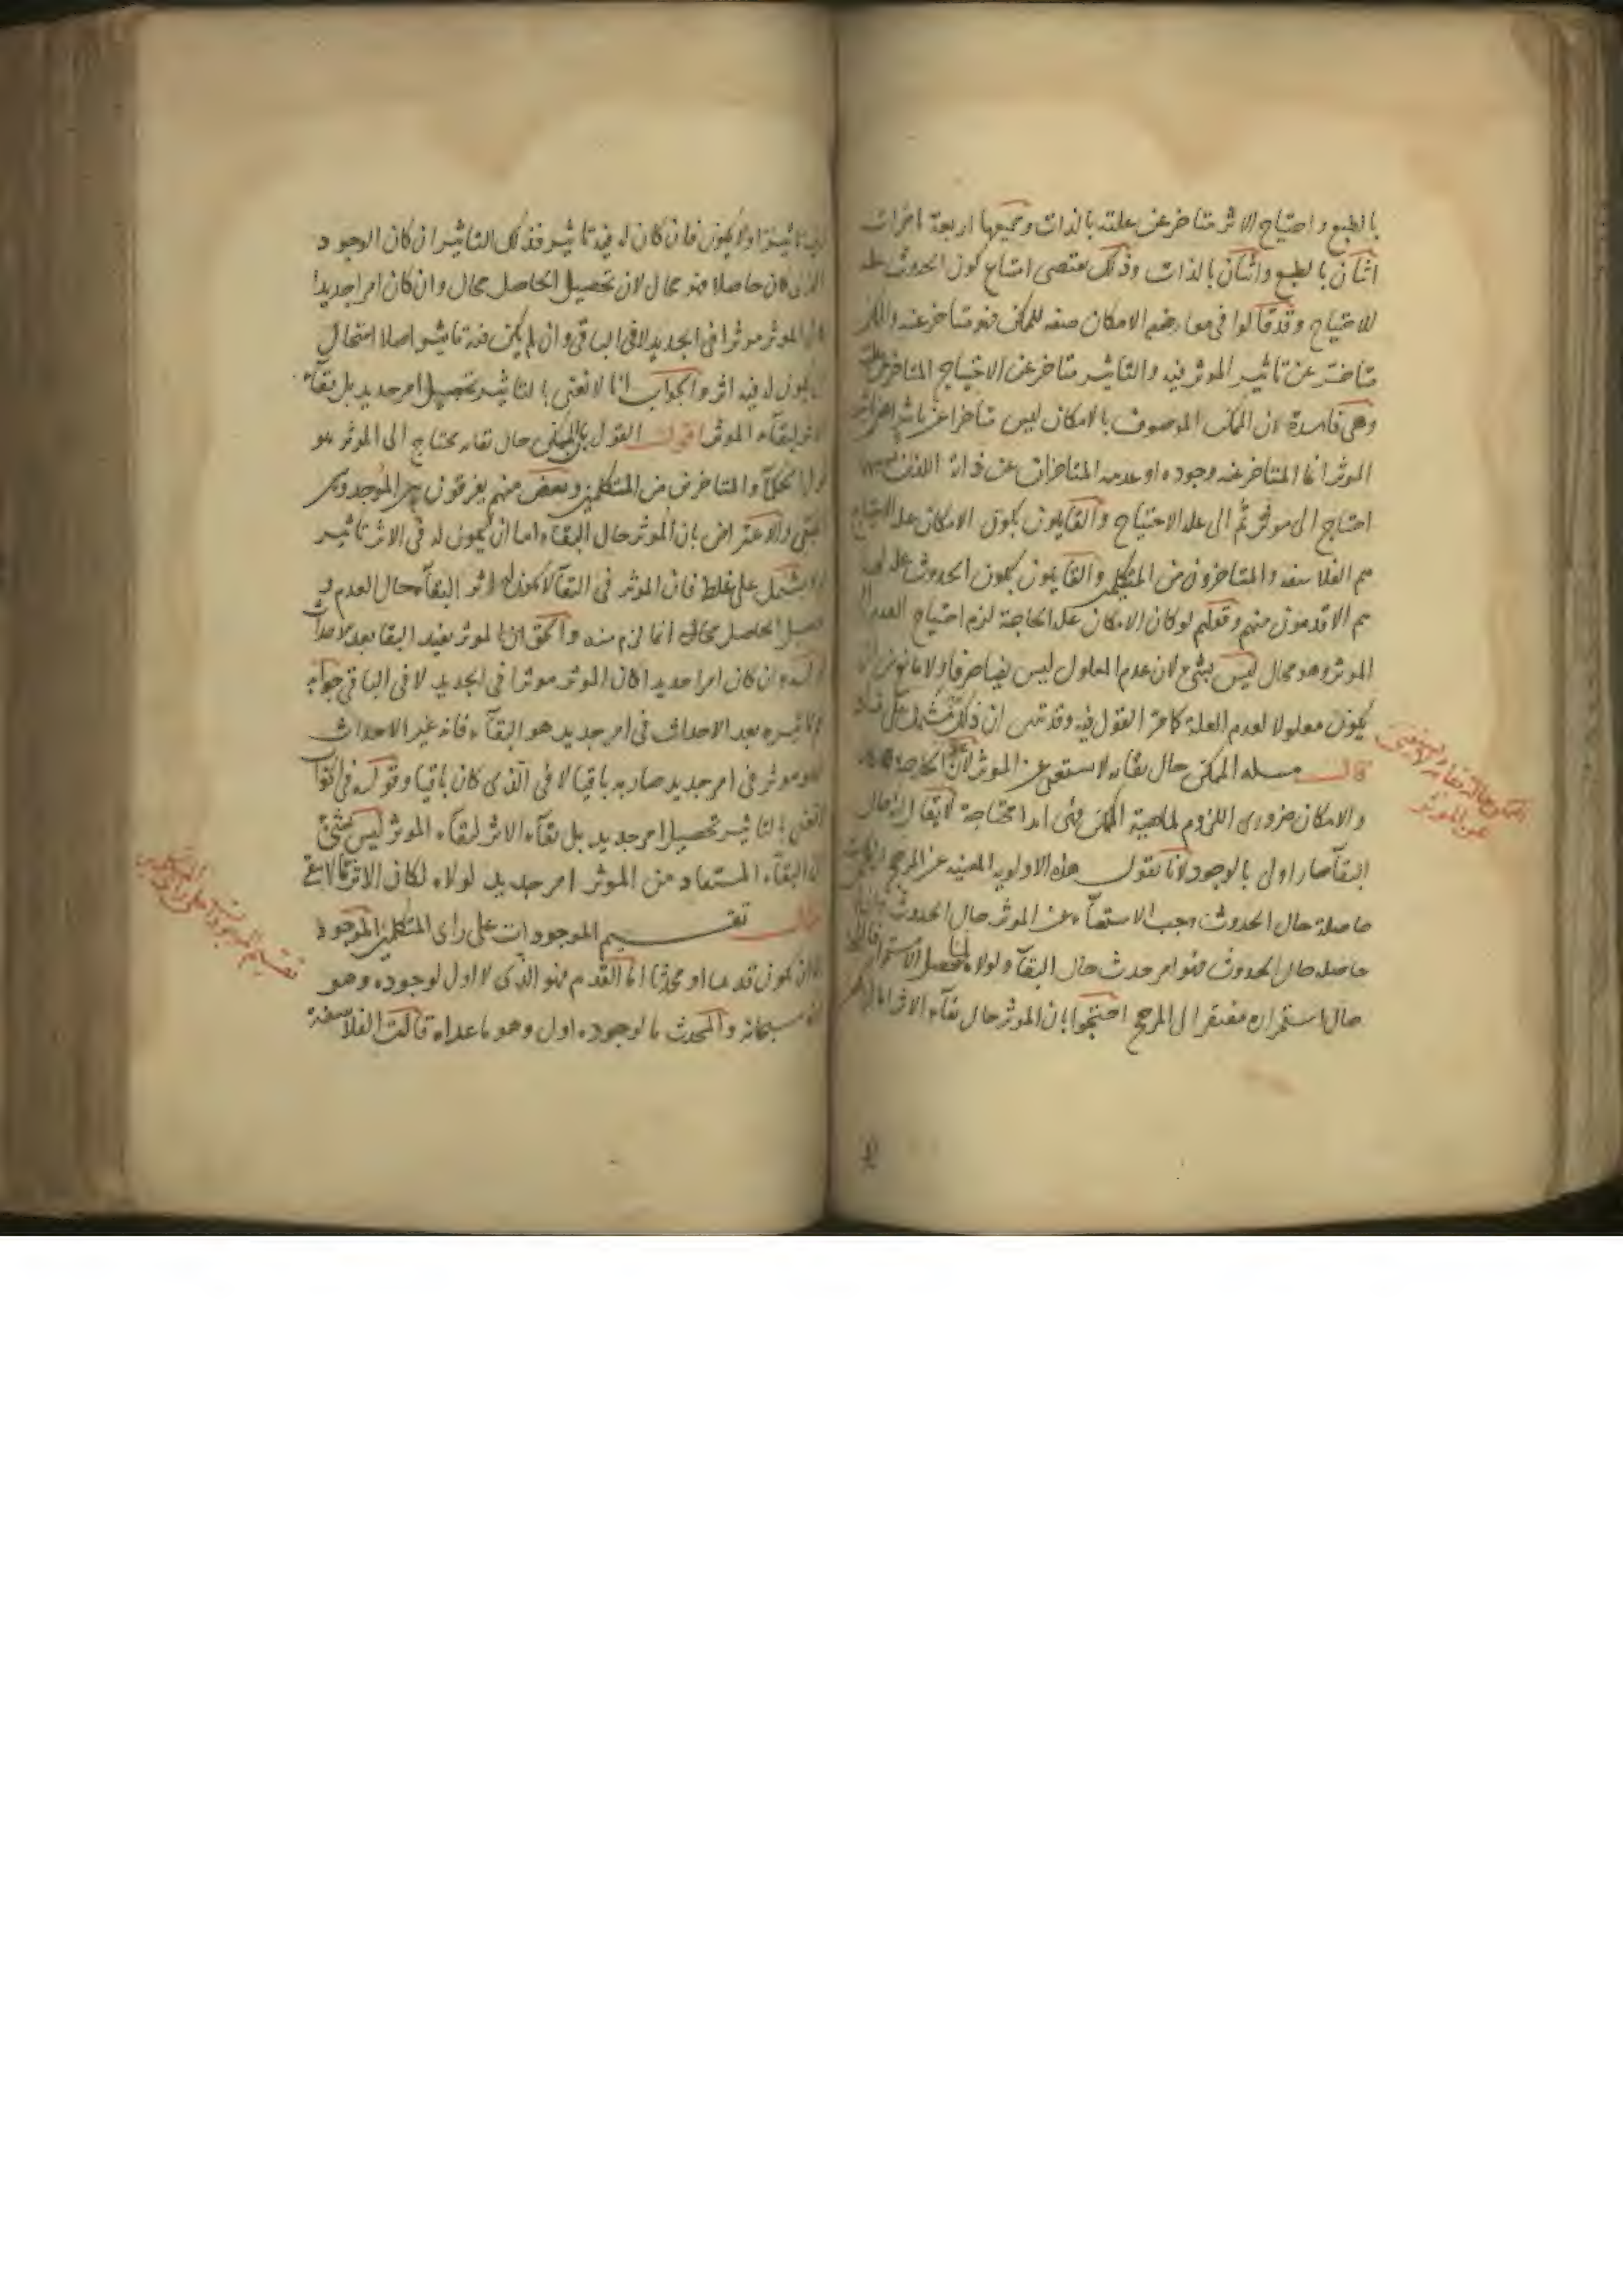 بالطبع واحتياج الاثر متاخر عن علته بالذات وجميعها اربعة تاخرات
اثنان بالطبع واثنان بالذات وذلك يقتضى امتناع كون الحدوث علة
للاحتياج وقد قالوا فى معارضته الامكان صفه للممكن فهو متاخر عنه والممكن
متاخر عن تاثير الموثر فيه والتاثير متاخر عن الاحتياج المتاخر عن علته
وهى فاسدة لان الممكن الموصوف بالامكان ليس متاخرا عن تاثير
الموثر انما المتاخر عنه وجوده او عدمه المتاخران عن ذاته اللذان
احتاج الى موثر ثم الى علة الاحتياج والقايلون بكون الامكان علة الاحتياج
هم الفلاسفه والمتاخرون من المتكلمين والقايلون بكون الحدوث علة له
هم الاقدمون منهم وقولهم لو كان الامكان علة الحاجة لزم احتياج العدم الى
الموثر وهو محال ليس بشئ لان عدم المعلول ليس نفيا صرفا ولا مانع من ان
يكون معلولا لعدم العلة كما مر القول فيه وقد تبين ان ذلك مشتمل على فساد
قال مسله الممكن حال بقائه لا يستغنى عن الموثر لان علة الحاجة
والامكان ضرورى اللزوم لماهية الممكن فهى ابدا محتاجة لا يقال انه حال
البقآ صار اولى بالوجود لانا نقول هذه الاولويه المغنيه عن المرجح ان كانت
حاصلة حال الحدوث وجب الاستغنآء عن الموثر حال الحدوث
حاصله حال الحدوث فهو امر حدث حال البقآ ولولاه لما حصل الاستمرار
حال استمراره مفتقر الى المرجح احتجوا بان الموثر حال بقآء الاثر اما ان
الممكن حالة بقايه لا يستغنى
عن الموثر
فيه تاثير او لا يكون فان كان له فيه تاثير فذلك التاثير ان كان الوجود
الذى كان حاصلا فهو محال لان تحصيل الحاصل محال وان كان امرا جديدا
كان الموثر موثرا فى الجديد لا فى الباقى وان لم يكن فيه تاثير اصلا استحال
ان يكون له فيه اثر والجواب انا لا نعنى بالتاثير تحصيل امر جديد بل بقآء
الاثر لبقآء الموثر اقول القول بان الممكن حال بقايه محتاج الى الموثر هو
قول الحكمآ والمتاخرين من المتكلمين وبعض منهم يفرقون بين الموجد وبين
المبقى والاعتراض بان الموثر حال البقآء اما ان يكون له فى الاثر تاثير
او لا يشتمل على غلط فان الموثر فى البقآ لا يكون له اثر البقآء حال العدم و
تحصيل الحاصل محال انما لزم منه والحق ان الموثر يفيد البقا بعد الاحداث
وقوله وان كان امرا جديدا كان الموثر موثرا فى الجديد لا فى الباقى جوابه
ان تاثيره بعد الاحداث فى امر جديد هو البقآء فانه غير الاحداث
فهو موثر فى امر جديد صار به باقيا لا فى الذى كان باقيا وقوله فى الجواب
لا نعنى بالتاثير تحصيل امر جديد بل بقآء الاثر لبقآء الموثر ليس بشئ
لان البقآء المستفاد من الموثر امر جديد لولاه لكان الاثر مما لا يبقى
قال تقسيم الموجودات على راى المتكلمين الموجود
اما ان يكون قديما او محدثا اما القديم فهو الذى لا اول لوجوده وهو
الله سبحانه والمحدث ما لوجوده اول وهو ما عداه قالت الفلاسفة
تقسيم الموجودات على راى المتكلمين